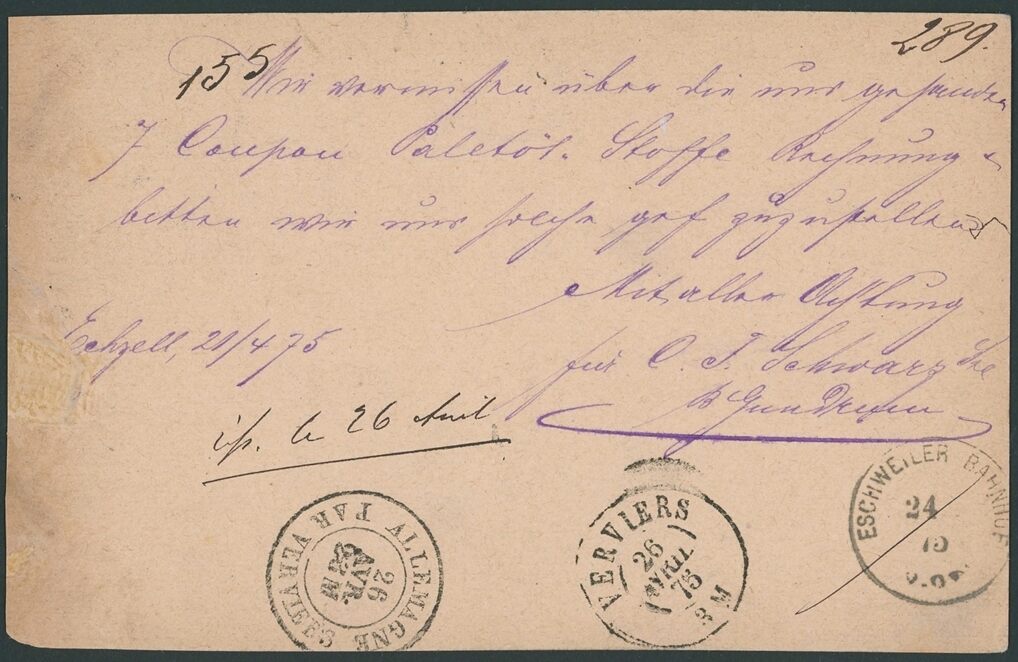 289.
155
Wir vermissen über die uns gesandten
7 Coupon Paletôt. Stoffe Rechnung &
bitten wir uns solche gef zuzustellen
Mit aller Achtung
Echzell, 21/4 75
für C. F. Schwarz
le 26 Avril
ESCHWEILER BAHNHOF
24
75
VERVIERS
26
AVRIL
75
8 M
ALLEMAGNE PAR VERVIERS
26
AVR.